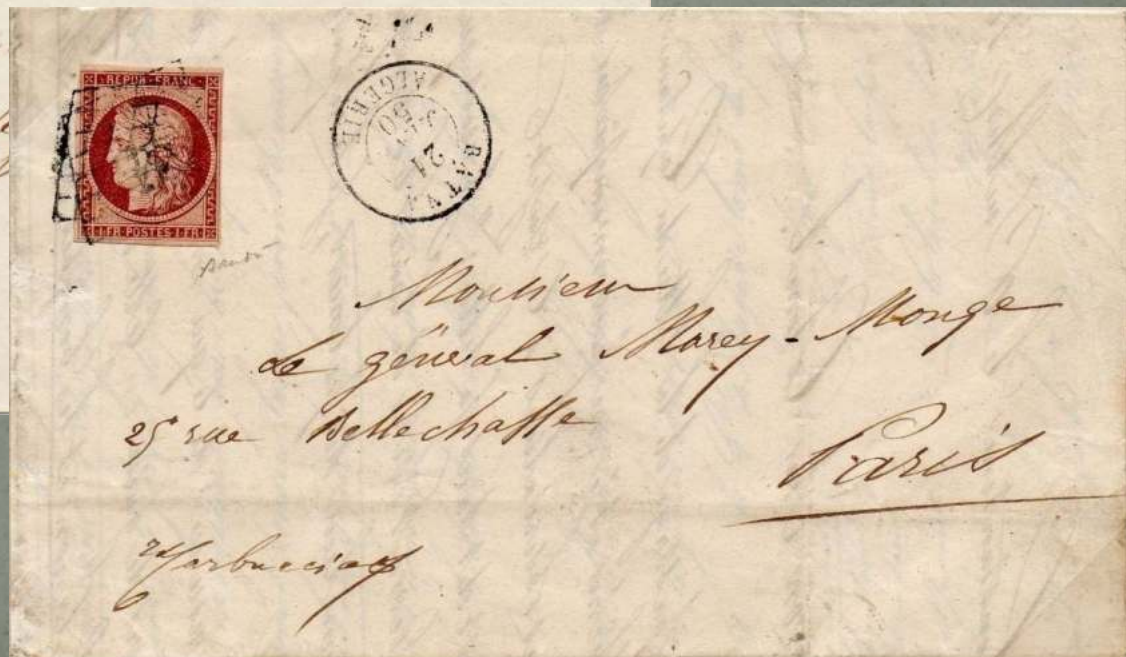 REPUB·FRANC·
1·FR·POSTES·1·FR
BATNA
21
50
ALGERIE
Monsieur
Le général Marey-Monge
25 rue Bellechasse
Paris